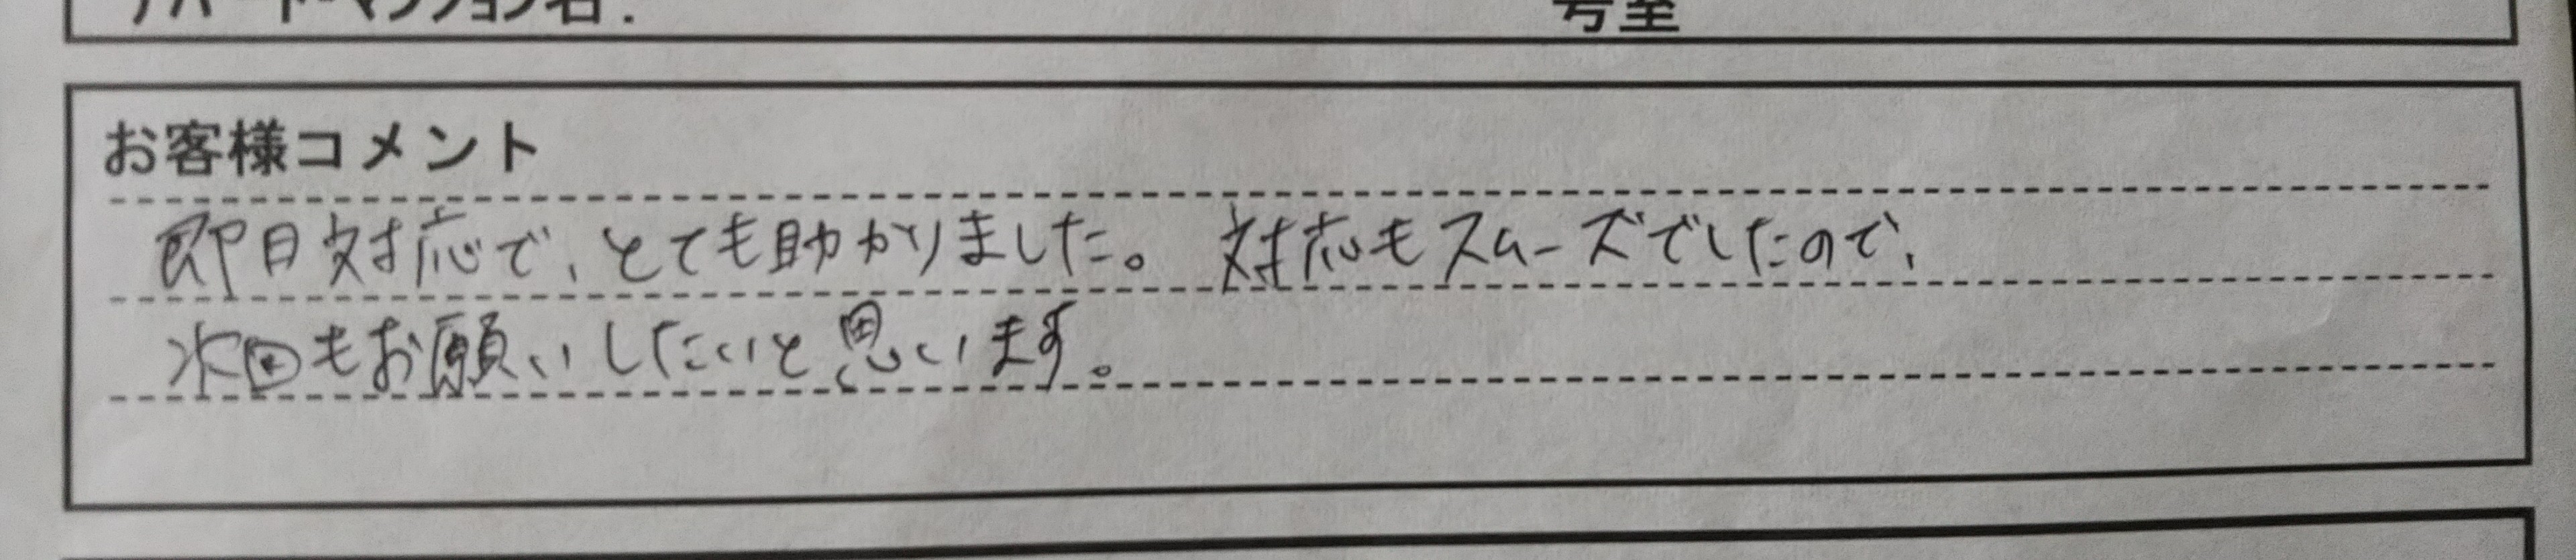 アパート・マンション名： 号室
お客様コメント
即日対応で、とても助かりました。対応もスムーズでしたので、
次回もお願いしたいと思います。